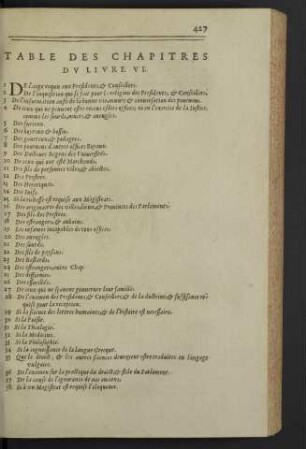 427
TABLE DES CHAPITRES
DV LIVRE VI.
1 DE l'aage requis aux Presidents, & Conseillers.
2 De l'inquisition qui se fait pour la religion des Presidents, & Conseillers.
3 De l'information de la bonne vie, mœurs & conversation des pourveus.
4 De ceux qui ne peuvent estre receus esdits offices, ou en l'exercice de la Justice,
comme les sourds, muets, & aveugles.
5 Des furieux.
6 Des boyteux & bossus.
7 Des goutteux, & podagres.
8 Des pourveus d'autres offices Royaux.
9 Des Docteurs Regens des Universités.
10 De ceux qui ont esté Marchands.
11 Des fils de personnes viles, & abiectes.
12 Des Prestres.
13 Des Heretiques.
14 Des Juifs.
15 Si la richesse est requise aux Magistrats.
16 Des originaires des villes, & Provinces des Parlemens.
17 Des fils des Prestres.
18 Des estrangers, & aubains.
19 Les infames incapables de tous offices.
20 Des aveugles.
21 Des sourds.
22 Des fils de paysans.
23 Des Bastards.
24 Des estrangers, autre Chap.
25 Des diffamés.
26 Des essorillés.
27 De ceux qui ne sçavent gouverner leur famille.
28 De l'examen des Presidents, & Conseillers, & de la doctrine, & suffisance requise pour la reception.
29 Si la science des lettres humaines, & de l'histoire est necessaire.
30 Si la Poësie.
31 Si la Theologie.
32 Si la Medecine.
33 Si la Philosophie.
34 Si la cognoissance de la langue Grecque.
35 Que le droict, & les autres sciences devroyent estre traduites en langage
vulgaire.
36 De l'examen sur la practique du droict, & stile du Parlement.
37 De la cause de l'ignorance de nos anciens.
38 Si à un Magistrat est requise l'eloquence.